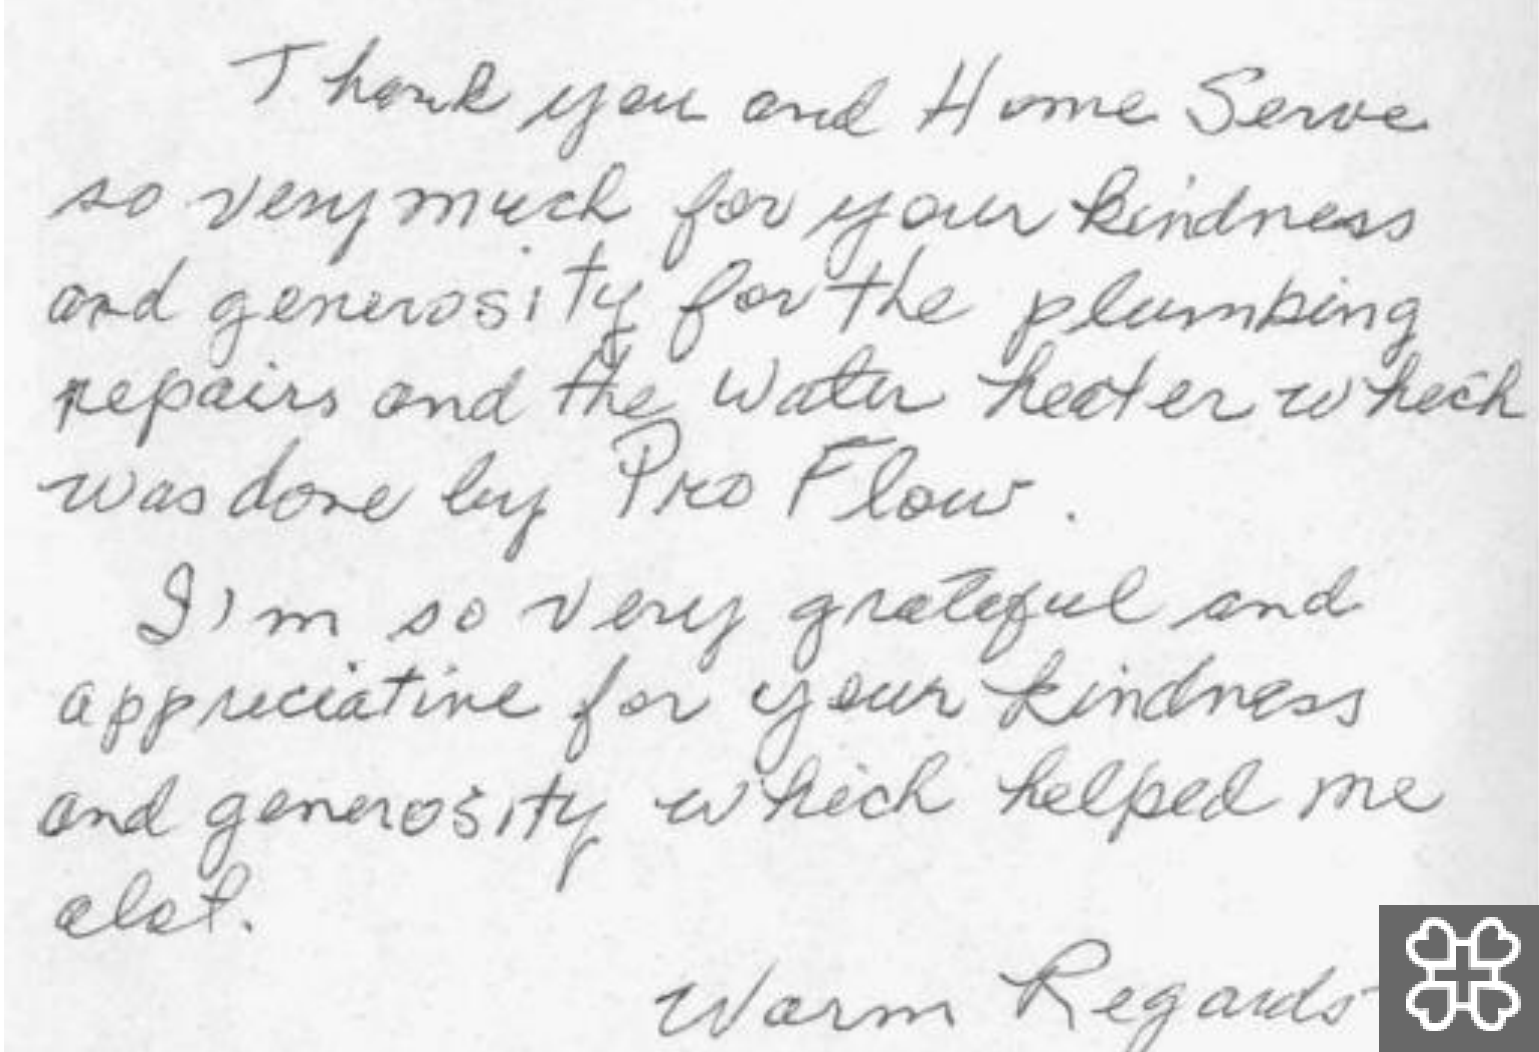 Thank you and Home Serve
so very much for your kindness
and generosity for the plumbing
repairs and the water heater which
was done by Pro Flow.
I'm so very grateful and
appreciative for your kindness
and generosity which helped me
alot.
Warm Regards